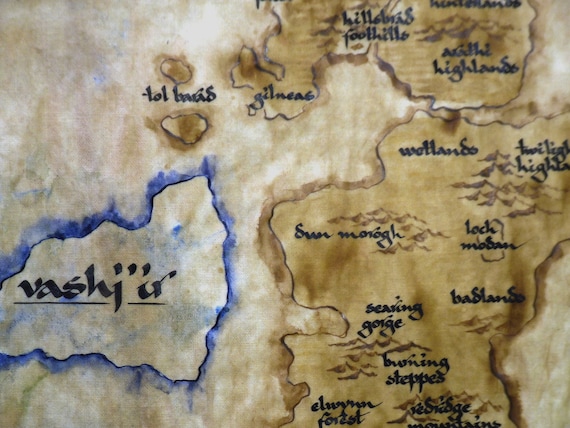 hinterlands
hillsbrad
foothills
arathi
highlands
tol barad
gilneas
wetlands
twiligh
highla
dun morogh
loch
modan
vashj'ir
badlands
searing
gorge
burning
steppes
elwynn
forest
redridge
mountains